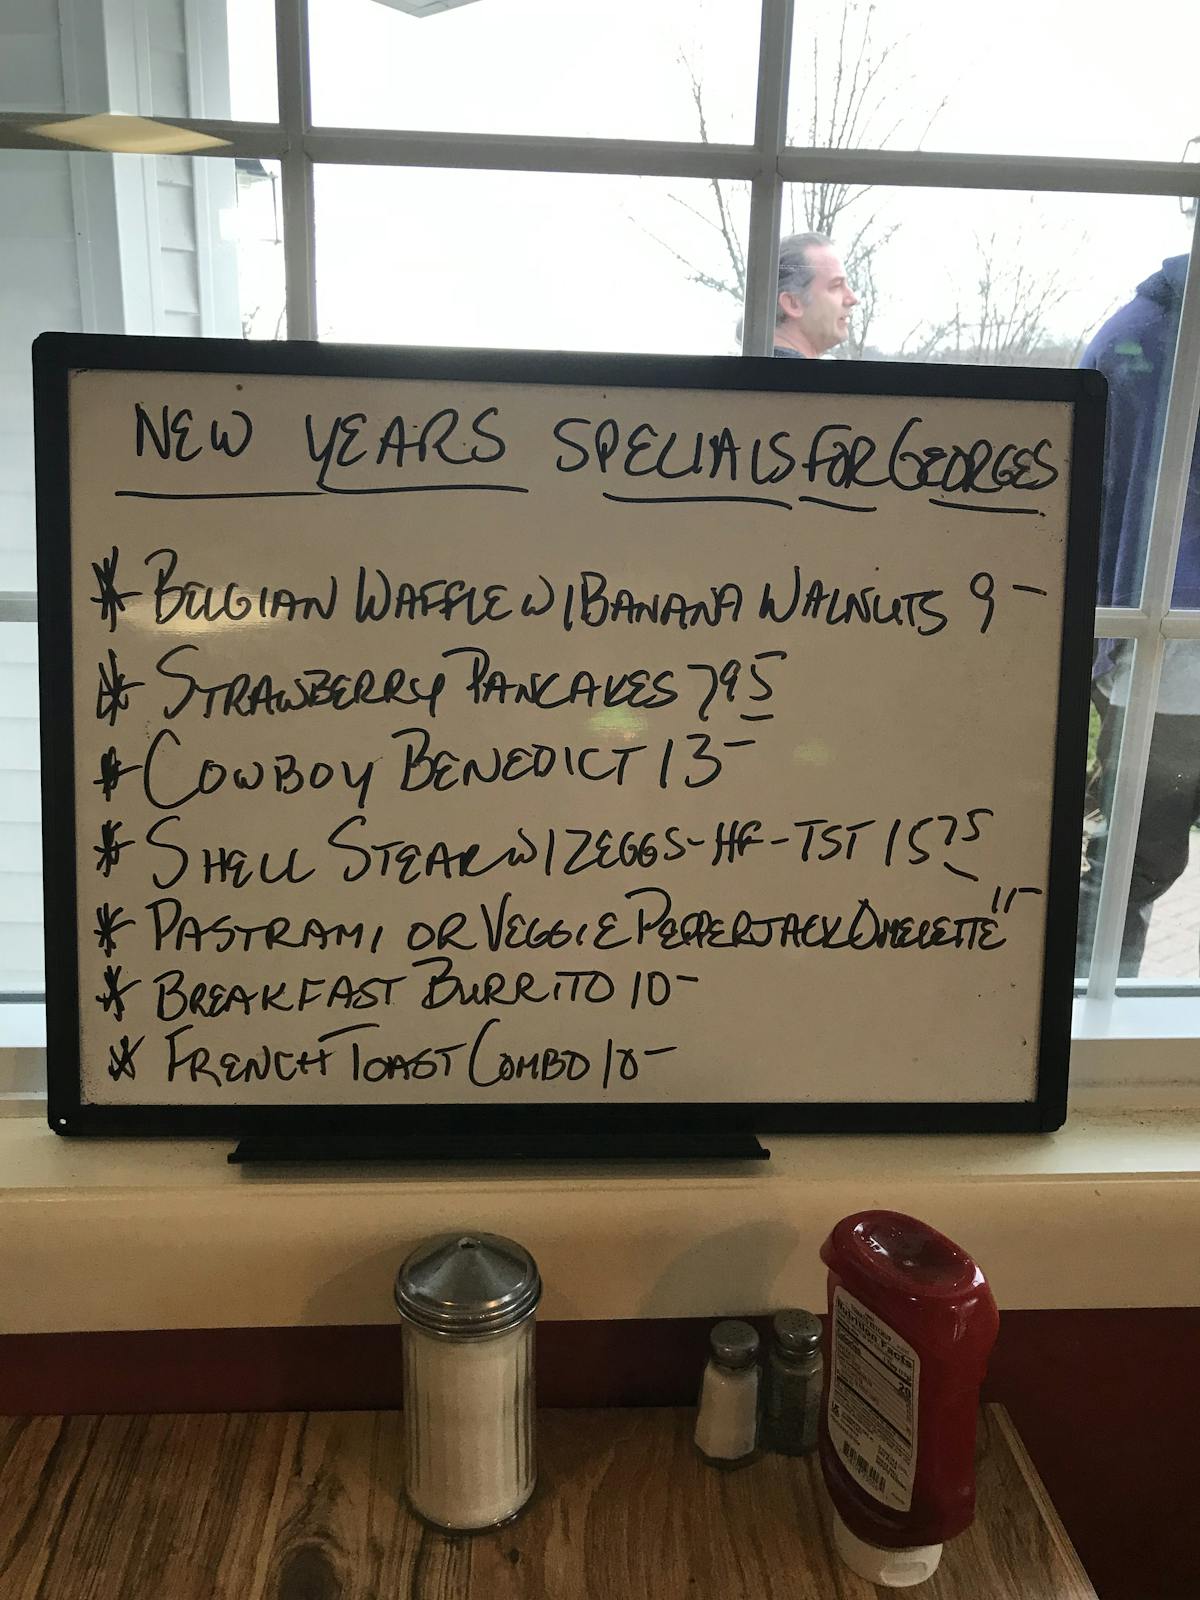 NEW YEARS SPECIALS FOR GEORGES
* BELGIAN WAFFLE W/BANANA WALNUTS 9-
* STRAWBERRY PANCAKES 795
* COWBOY BENEDICT 13-
* SHELL STEAK W/2EGGS-HF-TST 1575
* PASTRAMI OR VEGGIE PEPPERJACK OMELETTE 11-
* BREAKFAST BURRITO 10-
* FRENCH TOAST COMBO 10-
Nutrition Facts